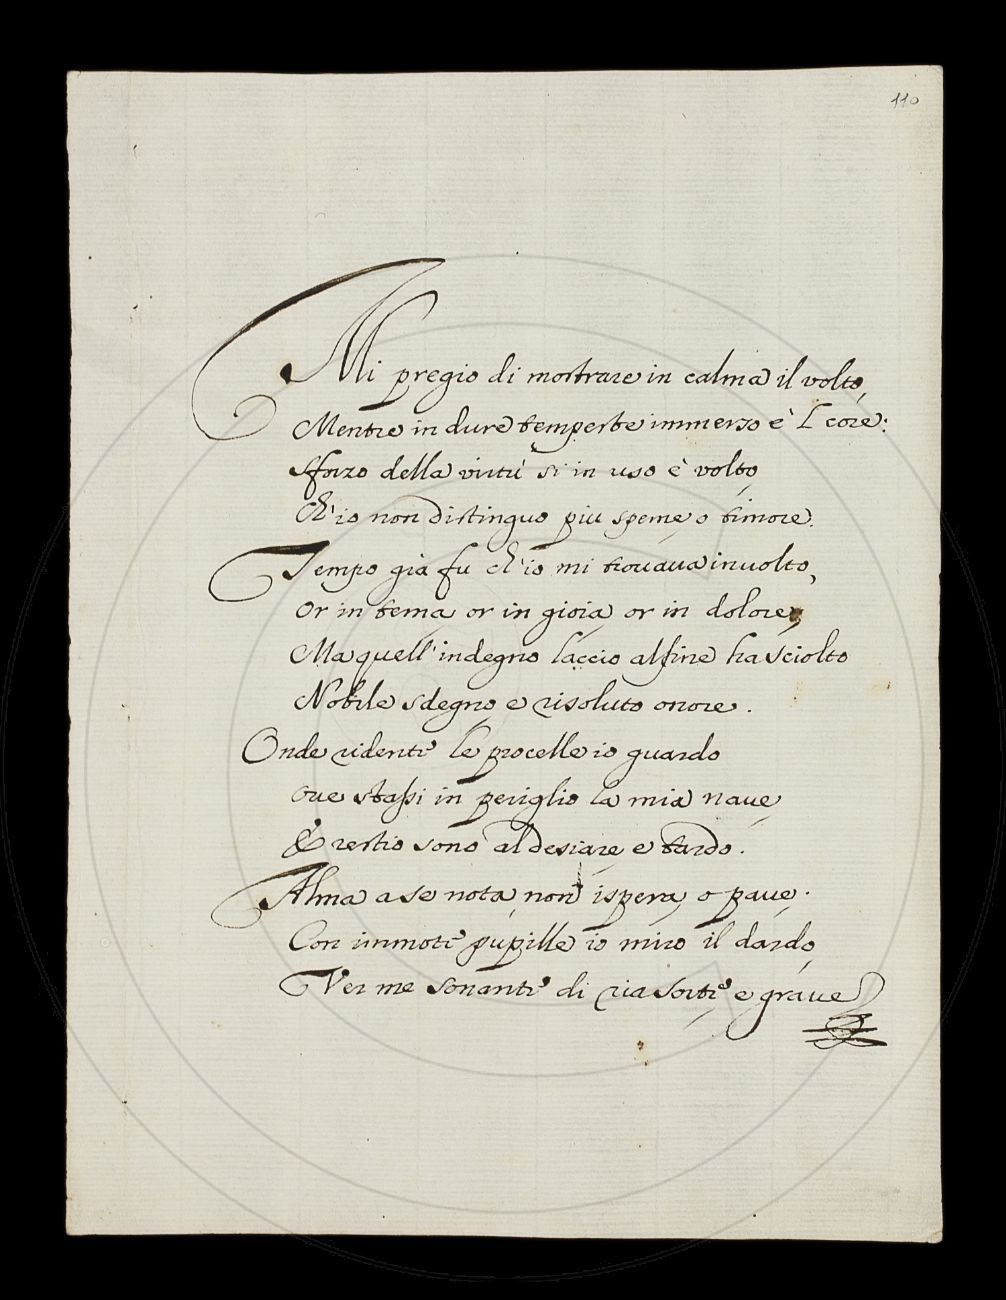 110
Mi pregio di mostrare in calma il volto,
Mentre in dure tempeste immerso è 'l core:
sforzo della virtù si in uso è volto,
Ch'io non distinguo piu speme o timore.
Tempo già fu ch'io mi trouaua inuolto,
Or in tema, or in gioia, or in dolore,
Ma quell'indegno laccio alfine ha sciolto
Nobile sdegno, e risoluto onore.
Onde ridenti le procelle io guardo
Oue stassi in periglio la mia naue,
E restio sono al desiare, e tardo.
Alma a se nota, non ispera, o paue.
Con immote pupille io miro il dardo,
Ver me sonante di ria sorte, e graue